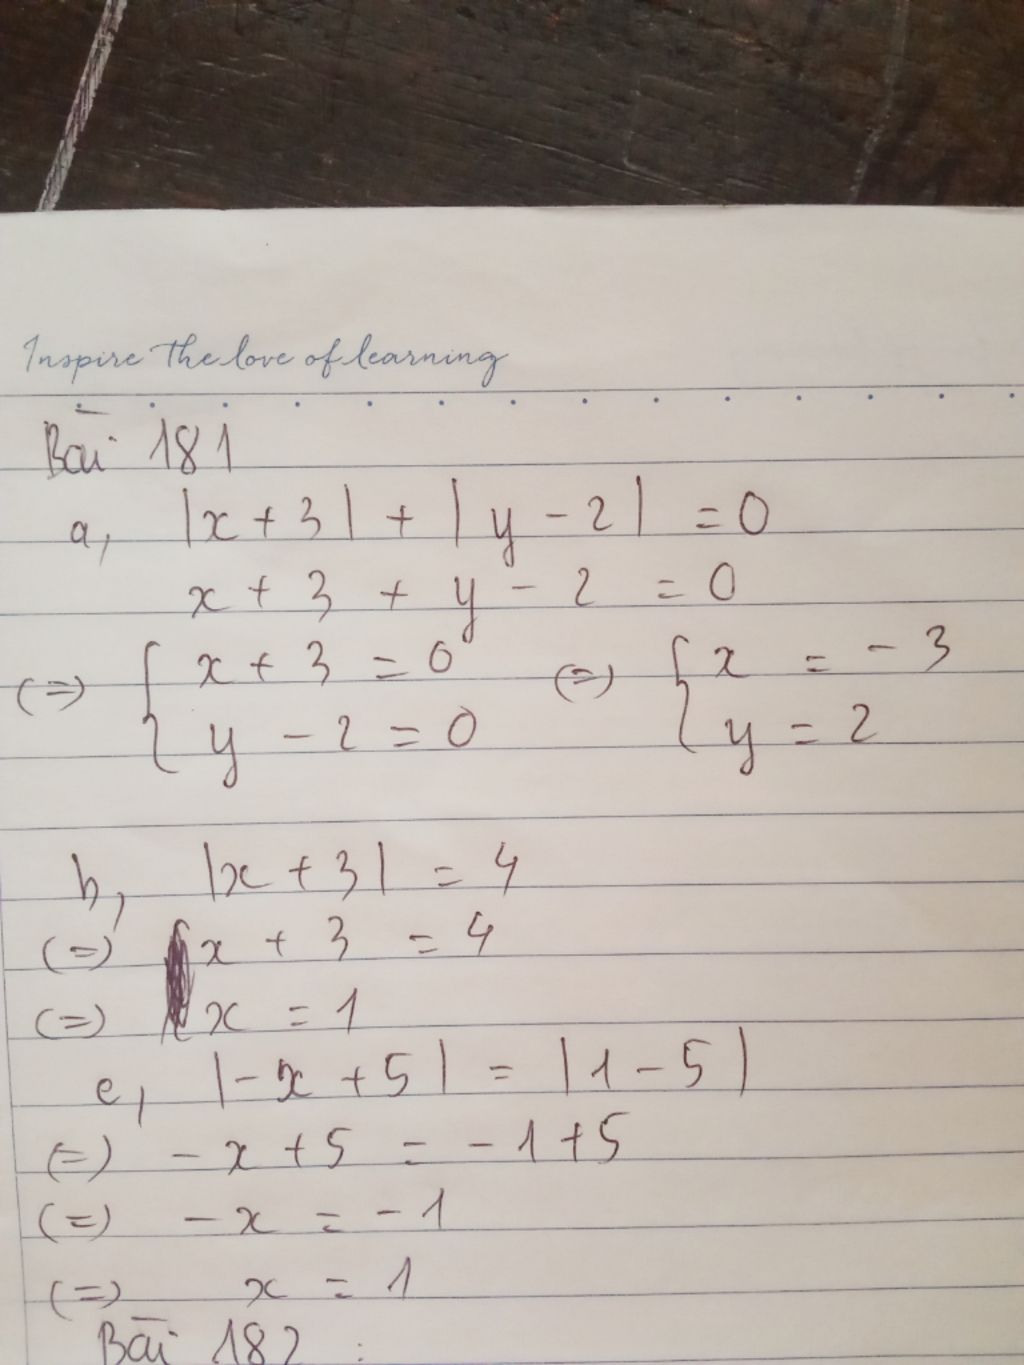 Inspire the love of learning
Bài 181
a, |x + 3| + |y - 2| = 0
x + 3 + y - 2 = 0
(=) { x + 3 = 0 (=) { x = - 3
y - 2 = 0 y = 2
b, |x + 3| = 4
(=) x + 3 = 4
(=) x = 1
c, |-x + 5| = |1 - 5|
(=) - x + 5 = - 1 + 5
(=) - x = - 1
(=) x = 1
Bài 182 :